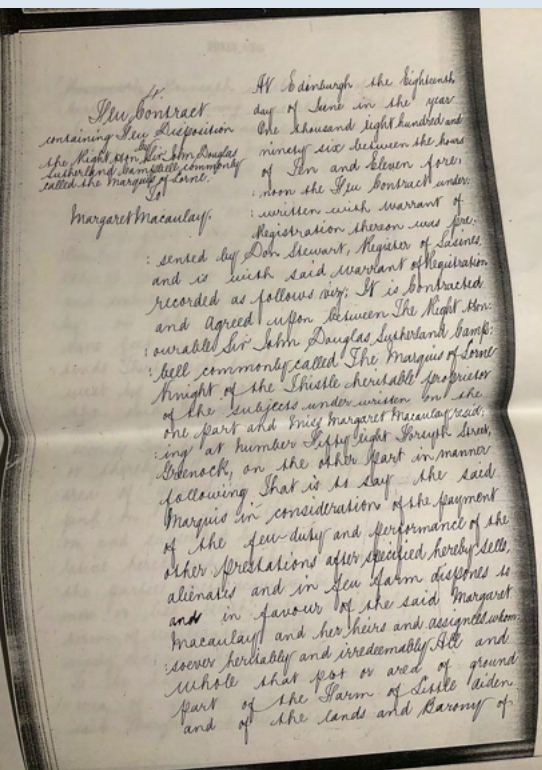 4.
Feu Contract
containing Feu Disposition
by
the Right Hon. Sir John Douglas
Sutherland Campbell commonly
called the Marquis of Lorne.
To
Margaret Macaulay.
At Edinburgh the Eighteenth
day of June in the year
One thousand eight hundred and
ninety six between the hours
of Ten and Eleven fore:
:noon the Feu Contract under:
:written with warrant of
Registration thereon was pre:
:sented by Don Stewart, Register of Sasines,
and is with said warrant of Registration
recorded as follows viz; It is Contracted
and Agreed upon between The Right Hon:
:ourable Sir John Douglas Sutherland Camp:
:bell commonly called The Marquis of Lorne
Knight of the Thistle heritable proprietor
of the subjects under written on the
one part and Miss Margaret Macaulay resid:
:ing at number Fifty eight Forsyth Street,
Greenock, on the other part in manner
following That is to say the said
Marquis in consideration of the payment
of the feu-duty and performance of the
other prestations after specified hereby sells,
alienates and in feu farm dispones to
and in favour of the said Margaret
Macaulay and her heirs and assignees whom:
:soever heritably and irredeemably All and
Whole that plot or area of ground
part of the Farm of Little aiden
and of the lands and Barony of